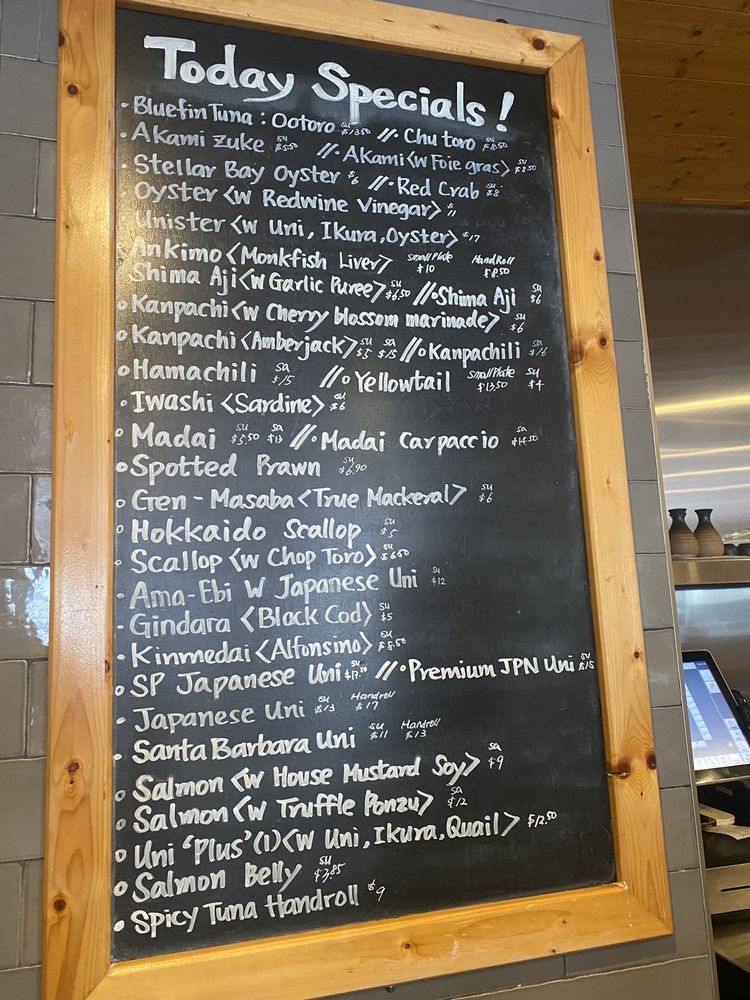 Today Specials!
• Bluefin Tuna : Ootoro su $13.50 // • Chu toro su $8.50
• Akami Zuke su $5.50 // • Akami <w Foie gras> su $8.50
• Stellar Bay Oyster $6 // • Red Crab su $8
Oyster <w Redwine Vinegar> $11
Unister <w Uni, Ikura, Oyster> $17
• Ankimo <Monkfish Liver> Small Plate $10 Hand Roll $8.50
• Shima Aji <w Garlic Puree> su $6.50 // • Shima Aji su $6
• Kanpachi <w Cherry blossom marinade> su $6
• Kanpachi <Amberjack> su $5 sa $15 // • Kanpachili sa $16
• Hamachili sa $15 // • Yellowtail Small Plate $13.50 su $4
• Iwashi <Sardine> su $6
• Madai su $5.50 sa $17 // • Madai Carpaccio sa $14.50
• Spotted Prawn su $6.90
• Gen-Masaba <True Mackeral> su $6
• Hokkaido Scallop su $5
• Scallop <w Chop Toro> su $6.50
• Ama-Ebi W Japanese Uni su $12
• Gindara <Black Cod> su $5
• Kinmedai <Alfonsino> su $8.50
• SP Japanese Uni su $17.50 // • Premium JPN Uni su $15
• Japanese Uni su $13 Handroll $17
• Santa Barbara Uni su $11 Handroll $13
• Salmon <w House Mustard Soy> sa $9
• Salmon <w Truffle Ponzu> sa $12
• Uni 'Plus' (1) <w Uni, Ikura, Quail> $12.50
• Salmon Belly su $3.85
• Spicy Tuna Handroll $9